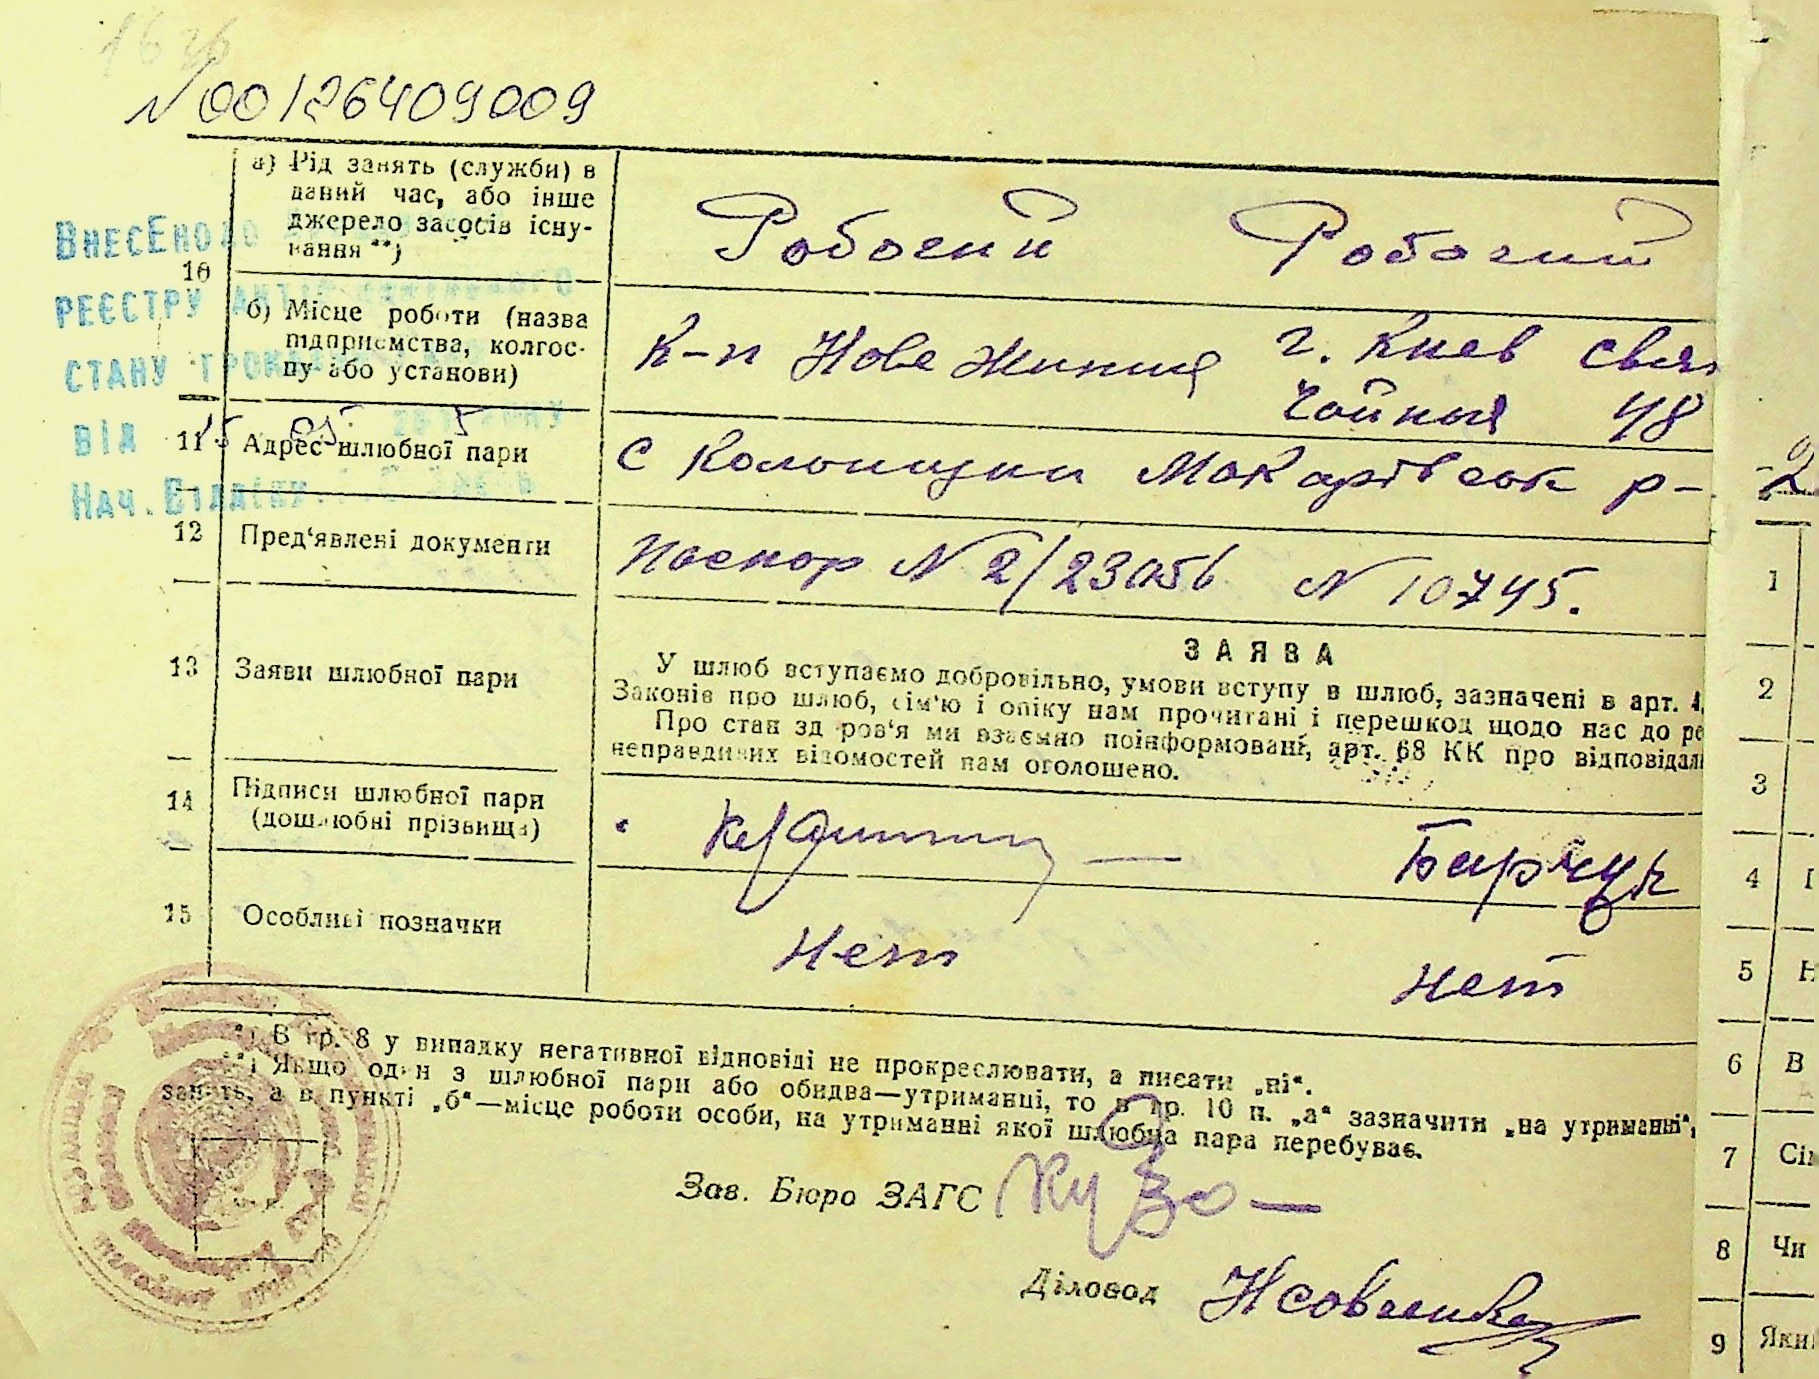 N 00126409009
а) Рід занять (служби) в
даний час, або інше
джерело засобів існу-
вання **)
Робочий Робочий
ВнесЕно до
10
РЕЄСТРУ
б) Місце роботи (назва
підприємства, колгос-
пу або установи)
К-п Нове Життя г. Киев
48
СТАНУ
ВІД 15 05
11 Адрес шлюбної пари
с Колонщини Макарівськ р-
Нач. Відділу.
12 Пред'явлені документи
Паспор N 2/23056 N 10745.
13 Заяви шлюбної пари
ЗАЯВА
У шлюб вступаємо добровільно, умови вступу в шлюб, зазначені в арт. 4,
Законів про шлюб, сім'ю і опіку нам прочитані і перешкод щодо нас до ре
Про стан здоров'я ми взаємно поінформовані, арт. 68 КК про відповідал
неправдивих відомостей нам оголошено.
14 Підписи шлюбної пари
(дошлюбні прізвища)
Барчук
15 Особливі позначки
Нет Нет
*) В гр. 8 у випадку негативної відповіді не прокреслювати, а писати „ні“.
**) Якщо один з шлюбної пари або обидва—утриманці, то в гр. 10 п. „а“ зазначити „на утриманні“,
занять, а в пункті „б“—місце роботи особи, на утриманні якої шлюбна пара перебуває.
Зав. Бюро ЗАГС
Діловод
1
2
3
4
5
6 В
7
8 Чи
9